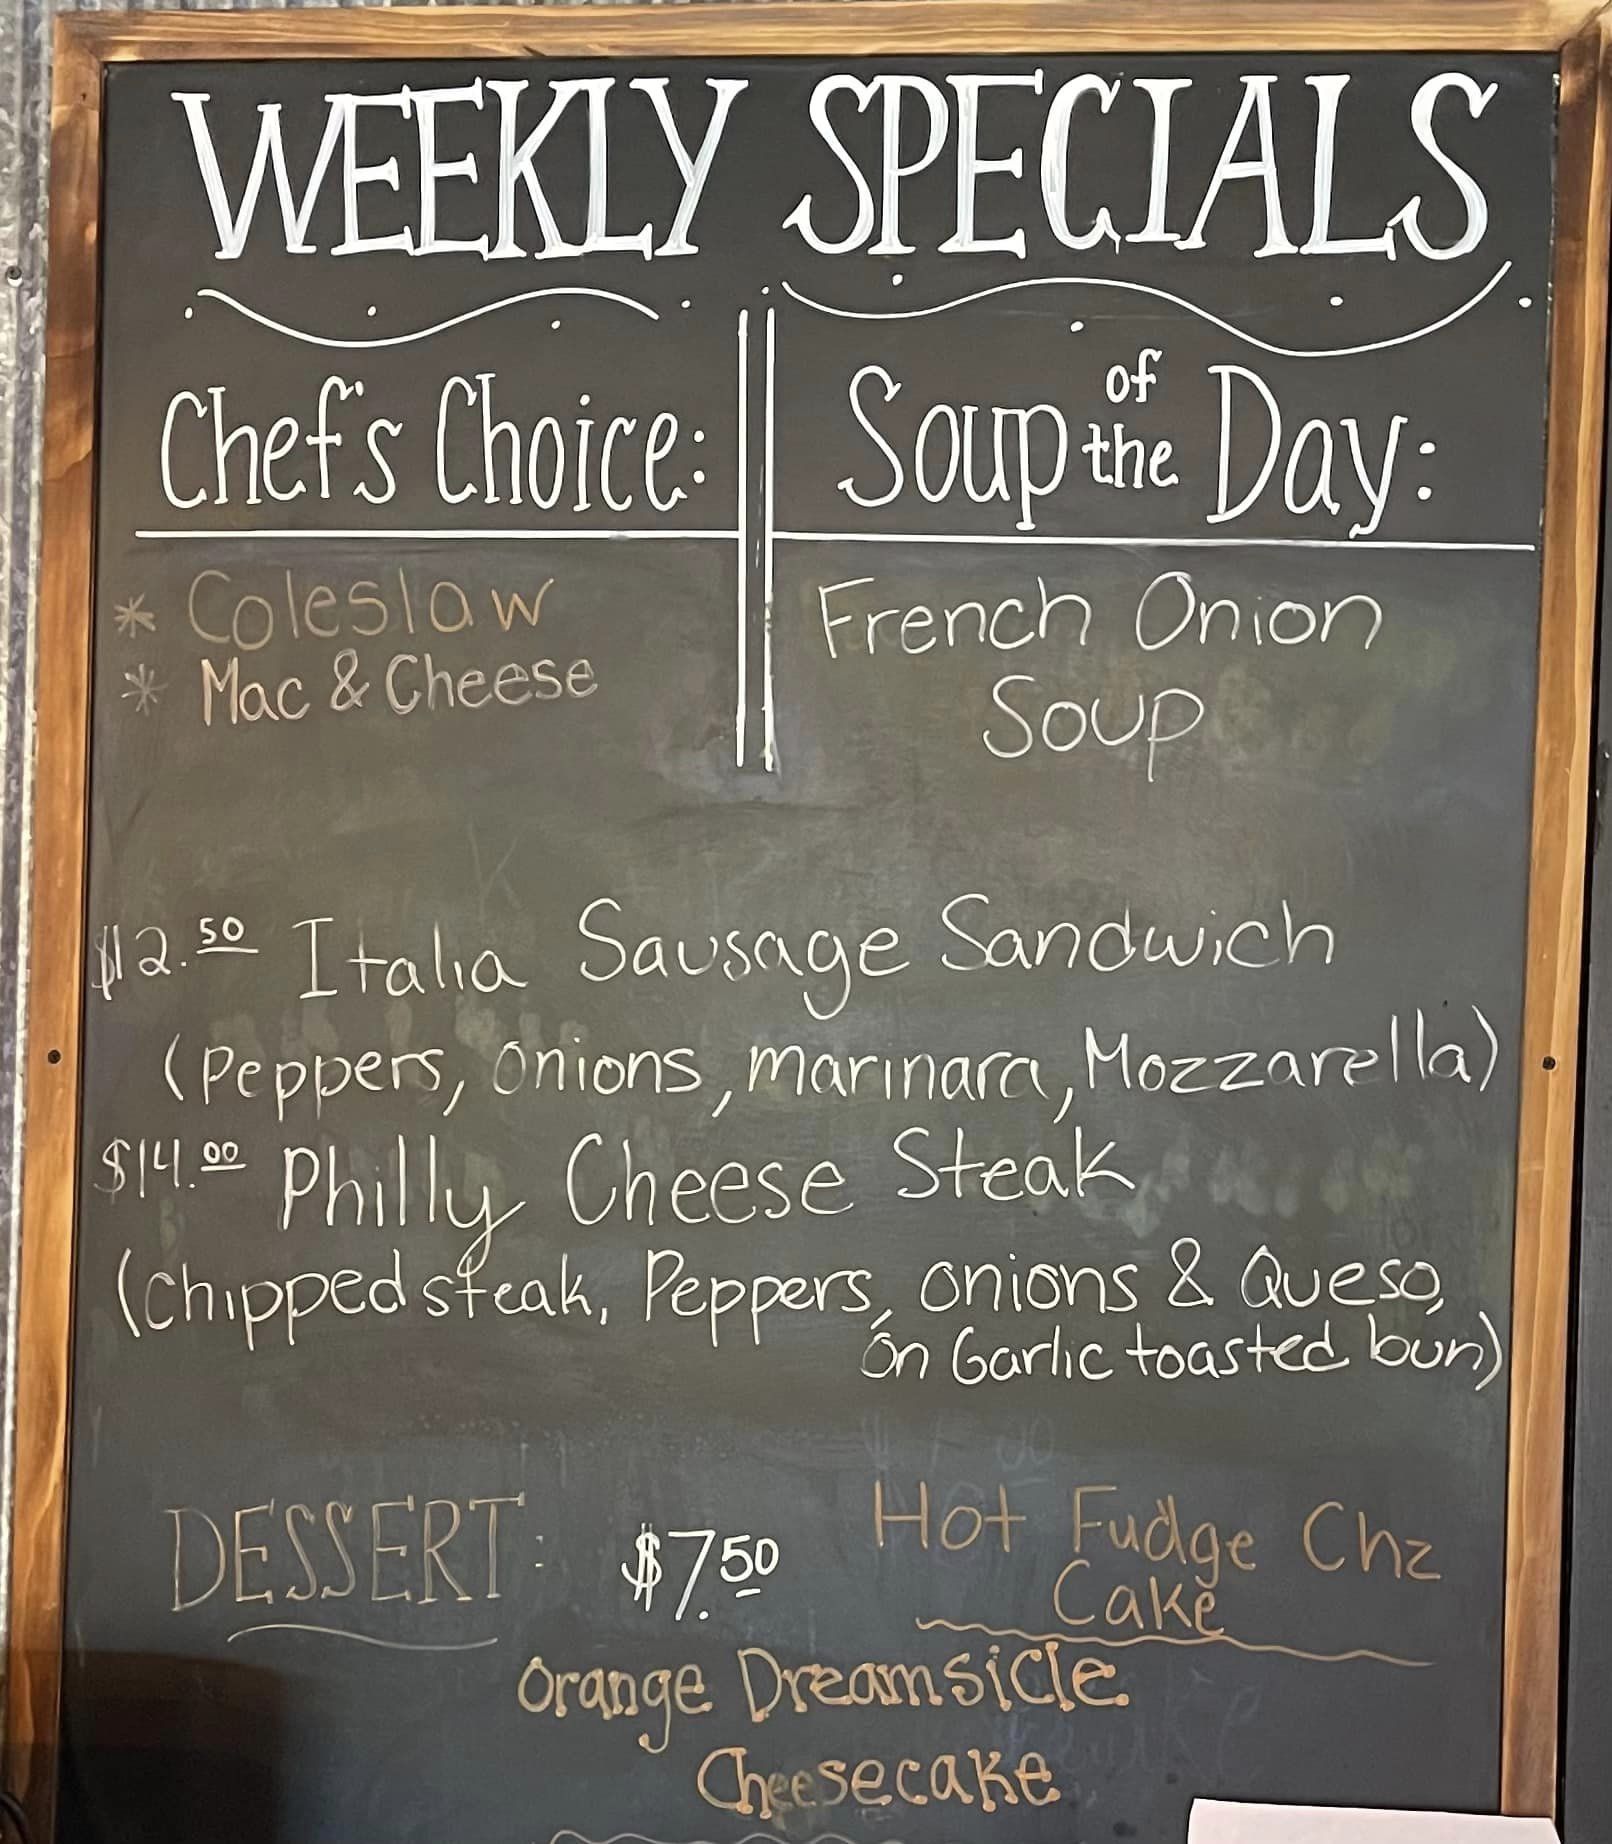 WEEKLY SPECIALS
Chef's Choice:
* Coleslaw
* Mac & Cheese
Soup of the Day:
French Onion
Soup
$12.50 Italia Sausage Sandwich
(Peppers, onions, marinara, Mozzarella)
$14.00 Philly Cheese Steak
(chipped steak, Peppers, onions & Queso,
on Garlic toasted bun)
DESSERT: $7.50 Hot Fudge Chz
Cake
Orange Dreamsicle
Cheesecake